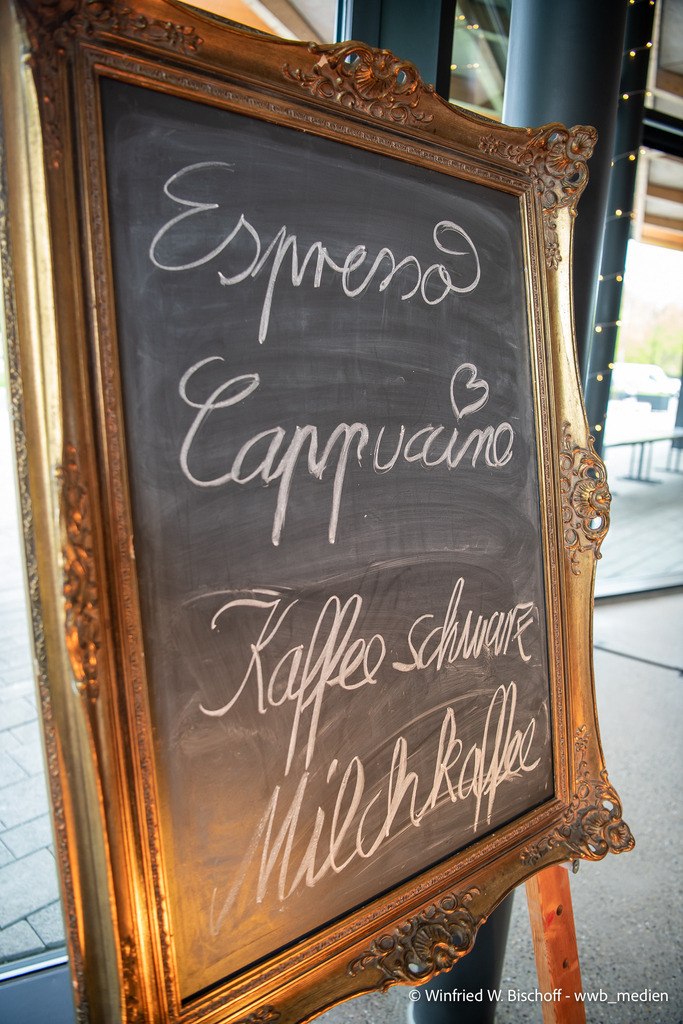 Espresso
Cappuccino
Kaffee schwarz
Milchkaffee
© Winfried W. Bischoff - wwb_medien